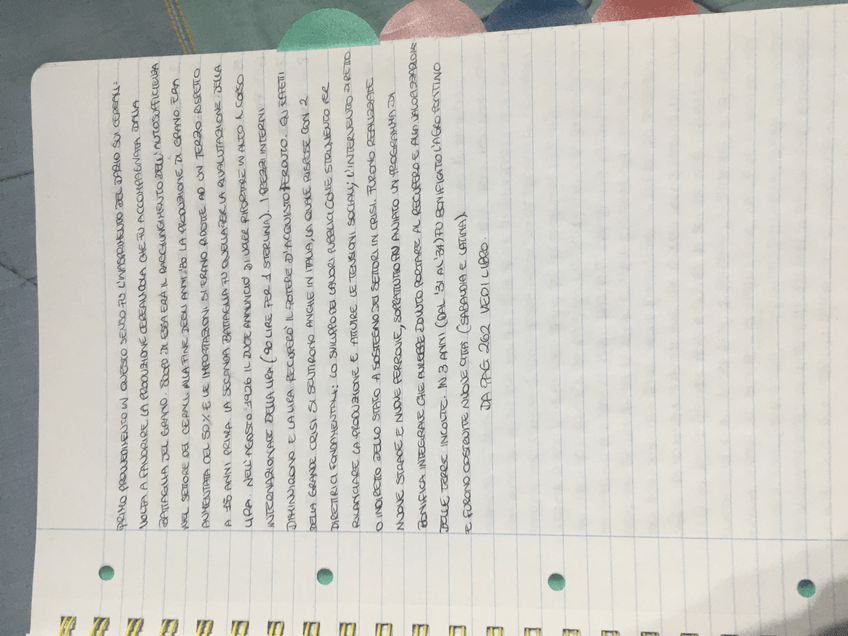 PRIMO PROVVEDIMENTO IN QUESTO SENSO FU L'INASPRIMENTO DEL DAZIO SUI CEREALI:
VOLTA A FAVORIRE LA PRODUZIONE CEREALICOLA CHE FU ACCOMPAGNATA DALLA
BATTAGLIA DEL GRANO. SCOPO DI ESSA ERA IL RAGGIUNGIMENTO DELL'AUTOSUFFICIENZA
NEL SETTORE DEI CEREALI. ALLA FINE DEGLI ANNI '30 LA PRODUZIONE DI GRANO ERA
AUMENTATA DEL 50% E LE IMPORTAZIONI SI ERANO RIDOTTE AD UN TERZO RISPETTO
A 15 ANNI PRIMA. LA SECONDA BATTAGLIA FU QUELLA PER LA RIVALUTAZIONE DELLA
LIRA. NELL'AGOSTO 1926 IL DUCE ANNUNCIÒ DI VOLER RIPORTARE IN ALTO IL CORSO
INTERNAZIONALE DELLA LIRA (90 LIRE PER 1 STERLINA). I PREZZI INTERNI
DIMINUIRONO E LA LIRA RECUPERÒ IL POTERE D'ACQUISTO PERDUTO. GLI EFFETTI
DELLA GRANDE CRISI SI SENTIRONO ANCHE IN ITALIA, LA QUALE RISPOSE CON 2
DIRETTRICI FONDAMENTALI: LO SVILUPPO DEI LAVORI PUBBLICI COME STRUMENTO PER
RILANCIARE LA PRODUZIONE E ATTUTIRE LE TENSIONI SOCIALI; L'INTERVENTO DIRETTO
O INDIRETTO DELLO STATO A SOSTEGNO DEI SETTORI IN CRISI. FURONO REALIZZATE
NUOVE STRADE E NUOVE FERROVIE, SOPRATTUTTO FU AVVIATO UN PROGRAMMA DI
BONIFICA INTEGRALE CHE AVREBBE DOVUTO PORTARE AL RECUPERO E ALLA VALORIZZAZIONE
DELLE TERRE INCOLTE. IN 3 ANNI (DAL '31 AL '34) FU BONIFICATO L'AGRO PONTINO
E FURONO COSTRUITE NUOVE CITTÀ (SABAUDIA E LATINA).
DA PAG. 262 VEDI LIBRO.